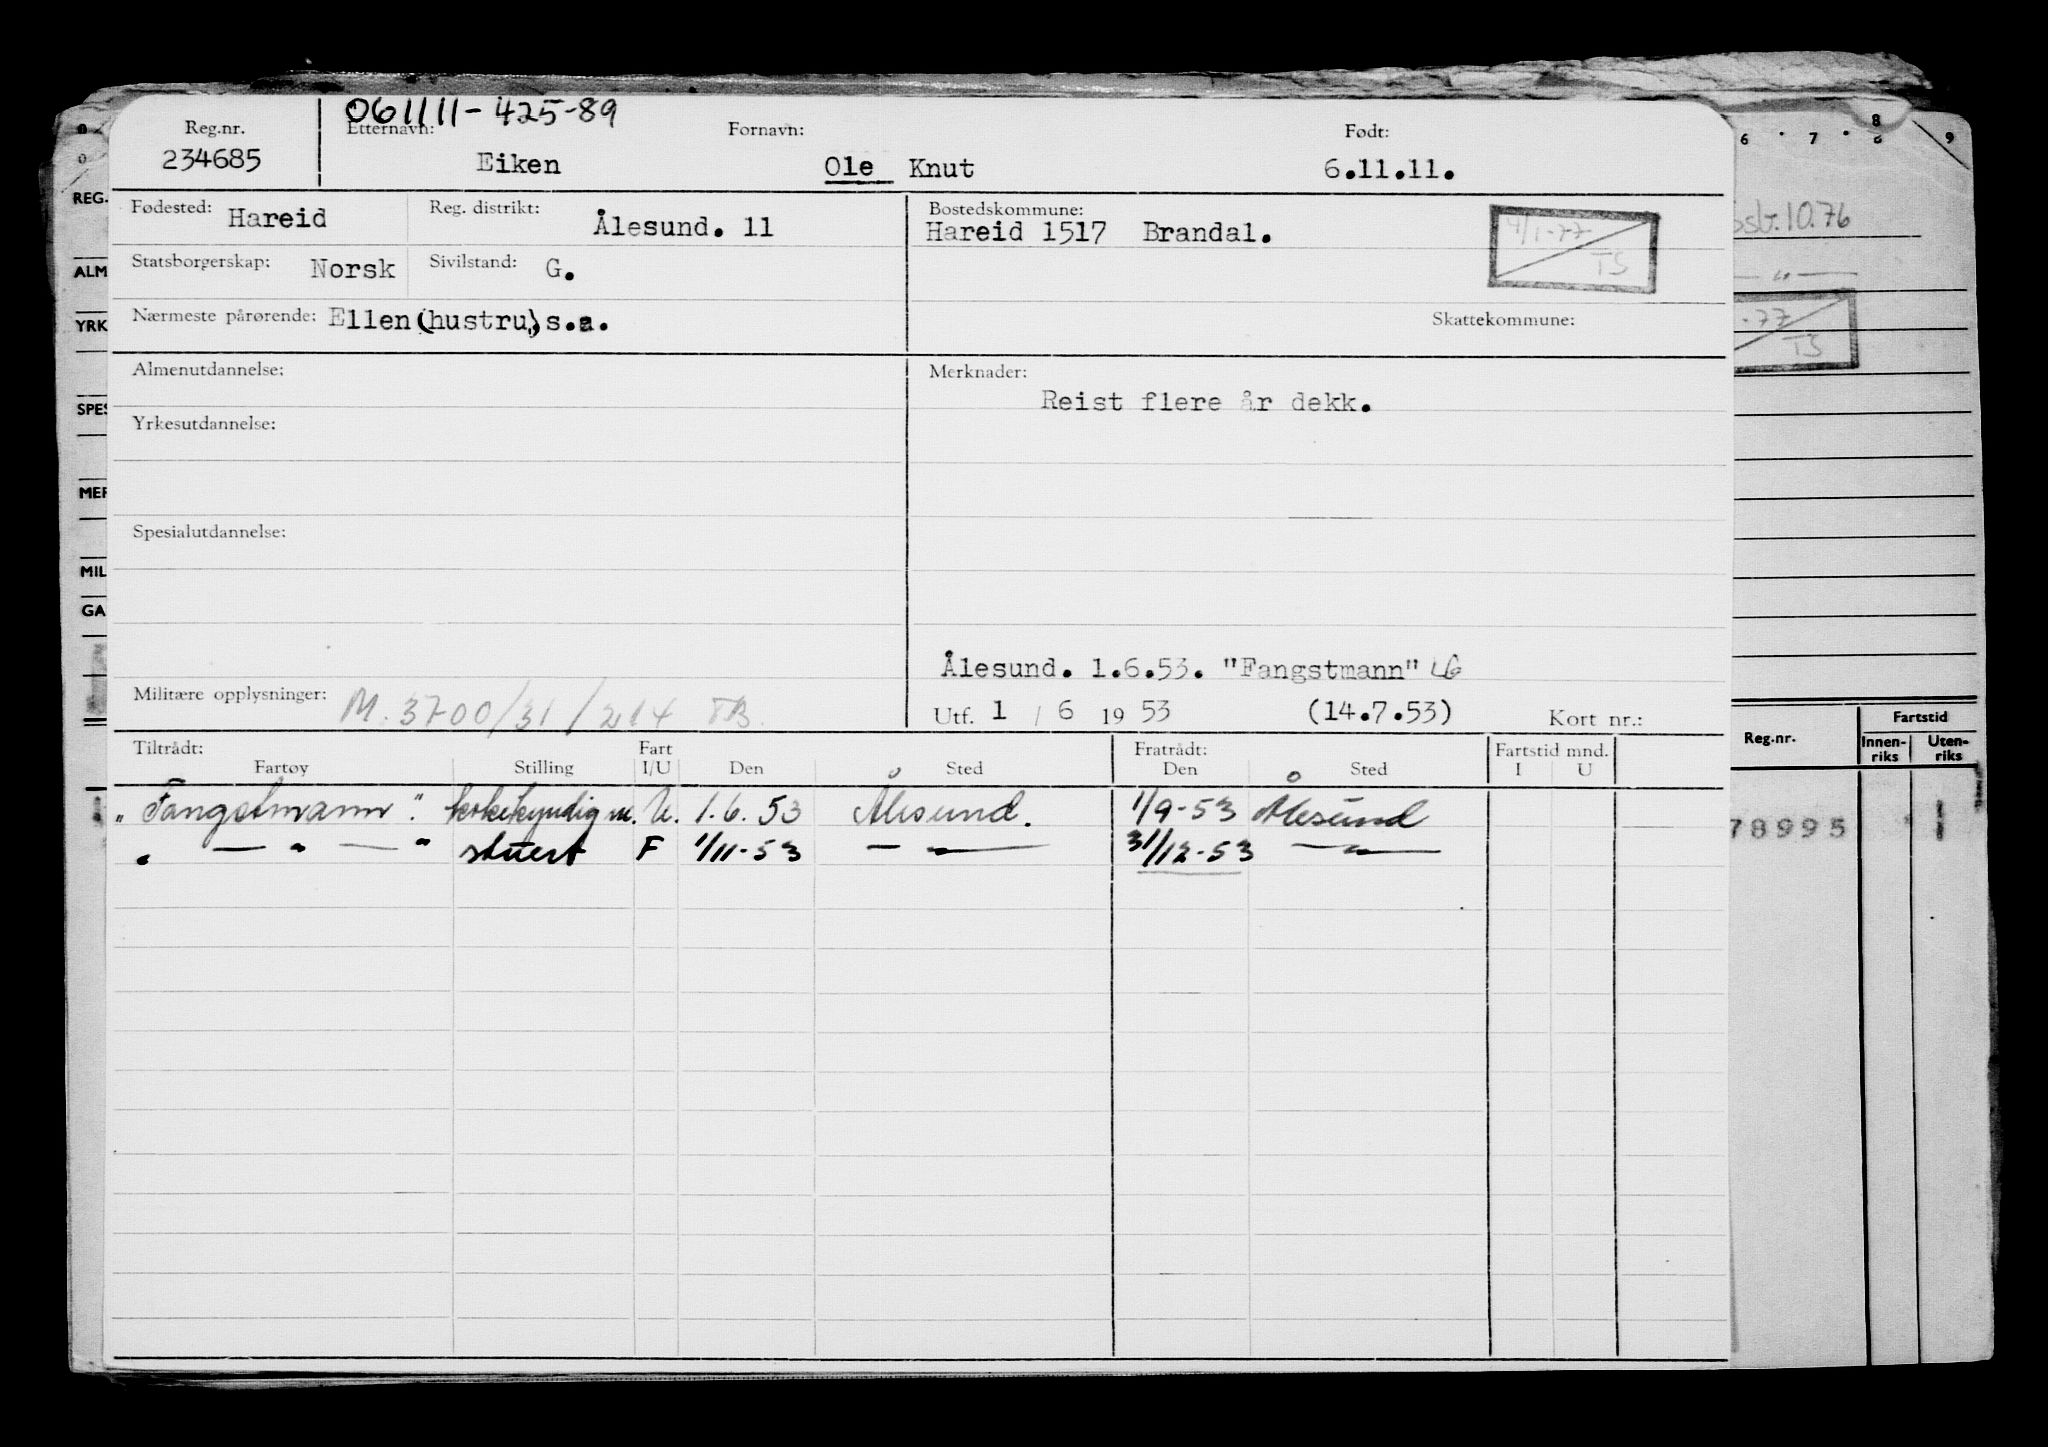 061111-425-89
Reg.nr. Etternavn: Fornavn: Født:
234685 Eiken Ole Knut 6.11.11.
Fødested: Hareid Reg. distrikt: Ålesund. 11 Bostedskommune:
Hareid 1517 Brandal.
4/1-77
TS
Statsborgerskap: Norsk Sivilstand: G.
Nærmeste pårørende: Ellen (hustru) s.a. Skattekommune:
Almenutdannelse: Merknader:
Reist flere år dekk.
Yrkesutdannelse:
Spesialutdannelse:
Ålesund. 1.6.53. "Fangstmann" LG
Militære opplysninger: M. 3700/31/214 TB.
Utf. 1 / 6 19 53 (14.7.53) Kort nr.:
Tiltrådt: Fart Fratrådt: Fartstid mnd.
Fartøy Stilling I/U Den Sted Den Sted I U
"Fangstmann". kokekyndig m. U. 1.6.53 Ålesund. 1/9-53 Ålesund
" — " — " stuert F 1/11-53 — " — 31/12-53 — " —
REG.
ALM
YRK
SPES
MER
MIL
GA
6 7 8 9
8
10.76
— " —
-77
TS
Reg.nr. Fartstid
Innen-riks Uten-riks
78995